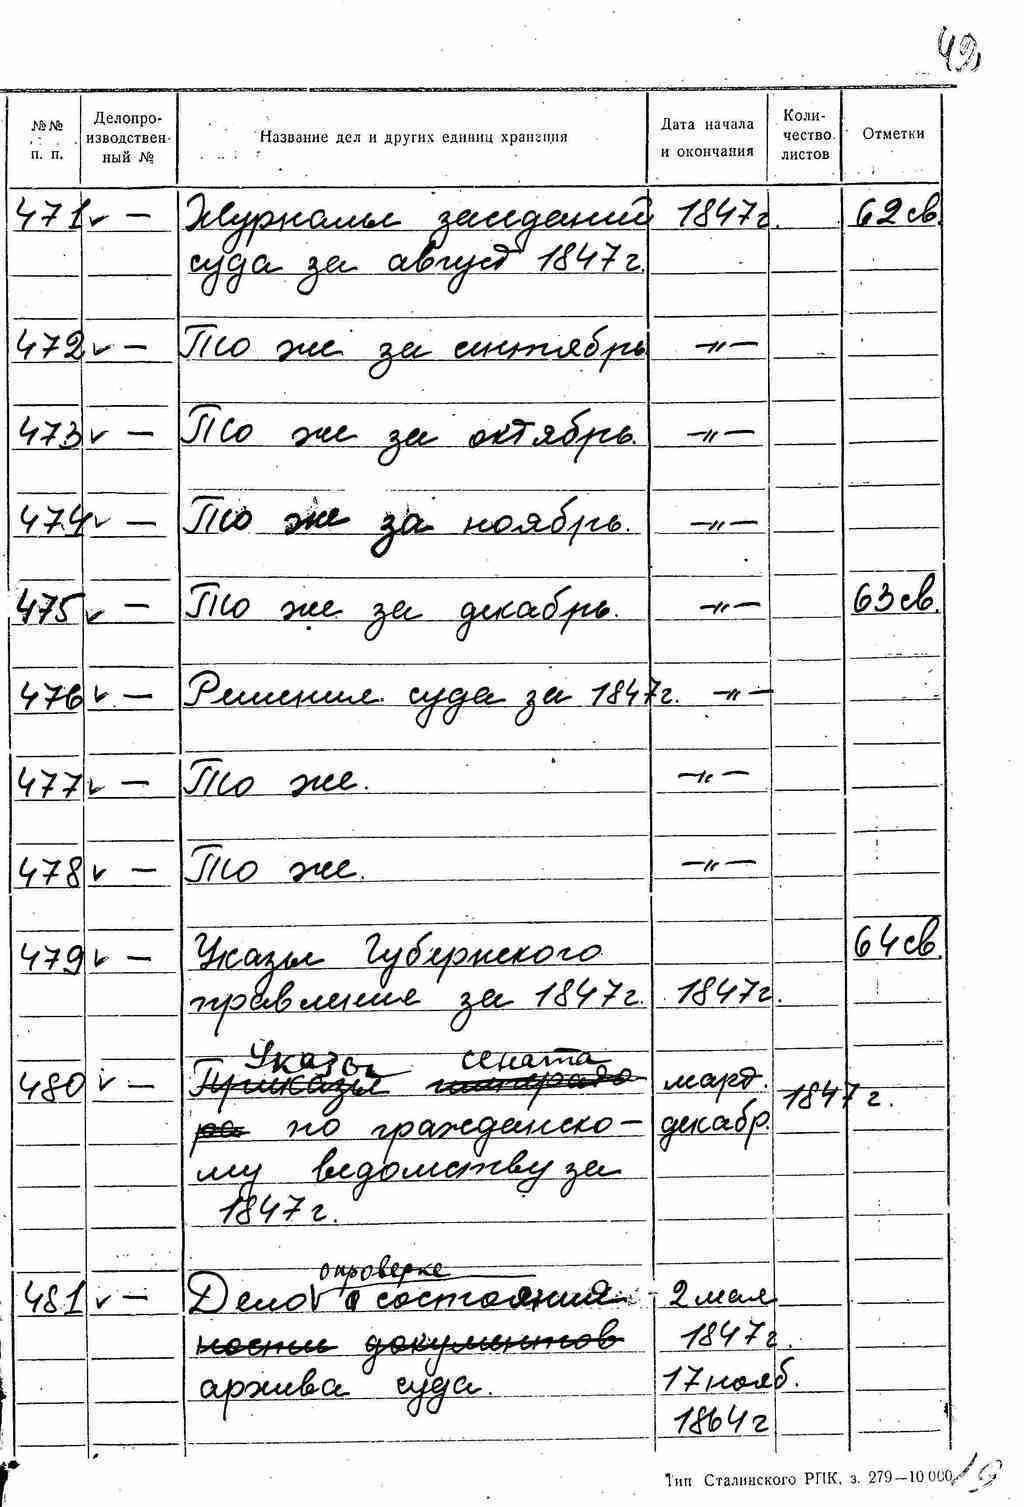 49
№№ п. п. Делопро-изводствен-ный № Название дел и других единиц хранения Дата начала и окончания Коли-чество листов Отметки
471 ✓ — Журналы заседаний 1847 г. 62 св.
суда за август 1847 г.
472 ✓ — То же за сентябрь —〃—
473 ✓ — То же за октябрь. —〃—
474 ✓ — То же за ноябрь. —〃—
475 ✓ — То же за декабрь. —〃— 63 св.
476 ✓ — Решение суда за 1847 г. —〃—
477 ✓ — То же. —〃—
478 ✓ — То же. —〃—
479 ✓ — Указы Губернского 64 св.
правление за 1847 г. 1847 г.
Указы сената
480 ✓ — Приказы императо март. 1847 г.
ра по гражданско- декабр.
му ведомству за
1847 г.
о проверке
481 ✓ — Дело о состояния 2 мая
ности документов 1847 г.
архива суда. 17 нояб.
1864 г
Тип Сталинского РПК, з. 279—10 000